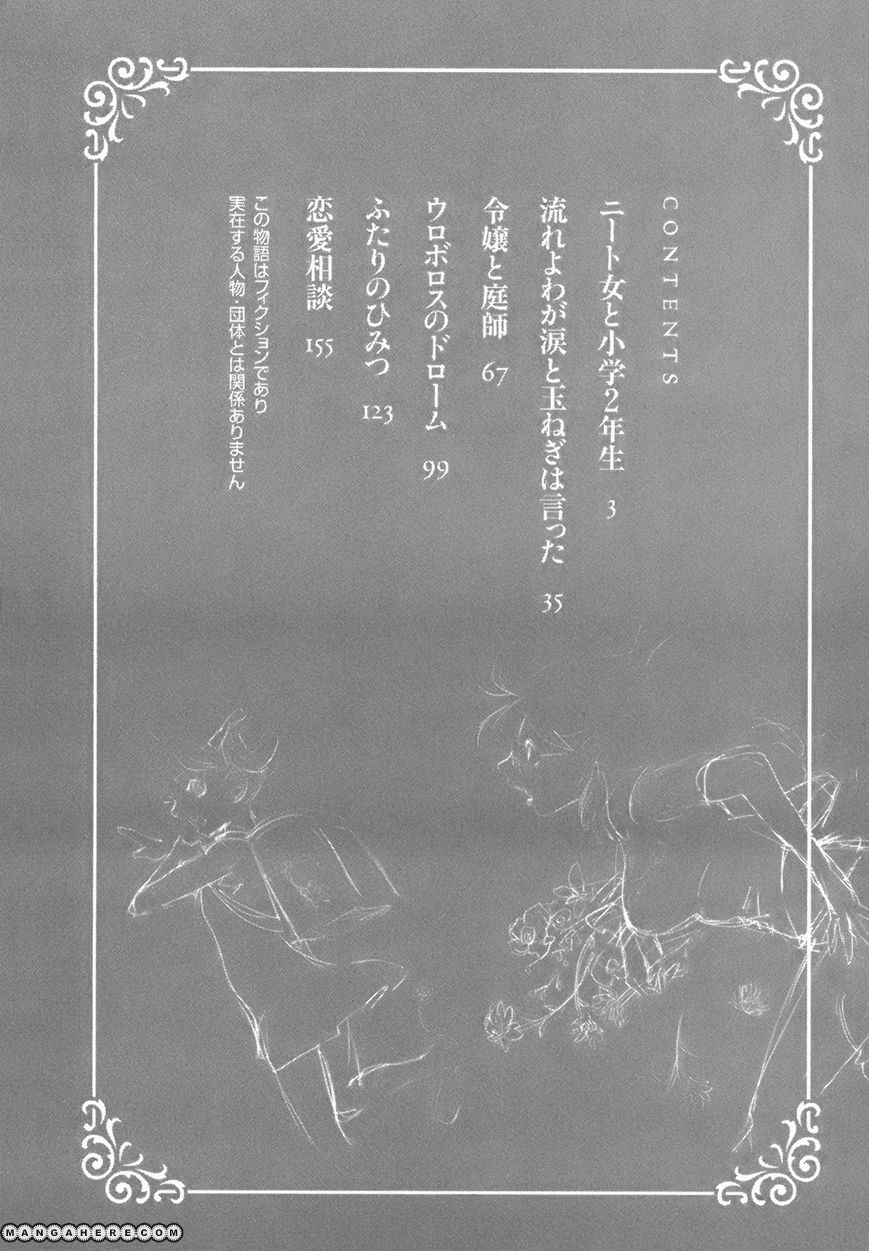 CONTENTS
ニート女と小学2年生 3
流れよわが涙と玉ねぎは言った 35
令嬢と庭師 67
ウロボロスのドローム 99
ふたりのひみつ 123
恋愛相談 155
この物語はフィクションであり
実在する人物・団体とは関係ありません
MANGAHERE.COM